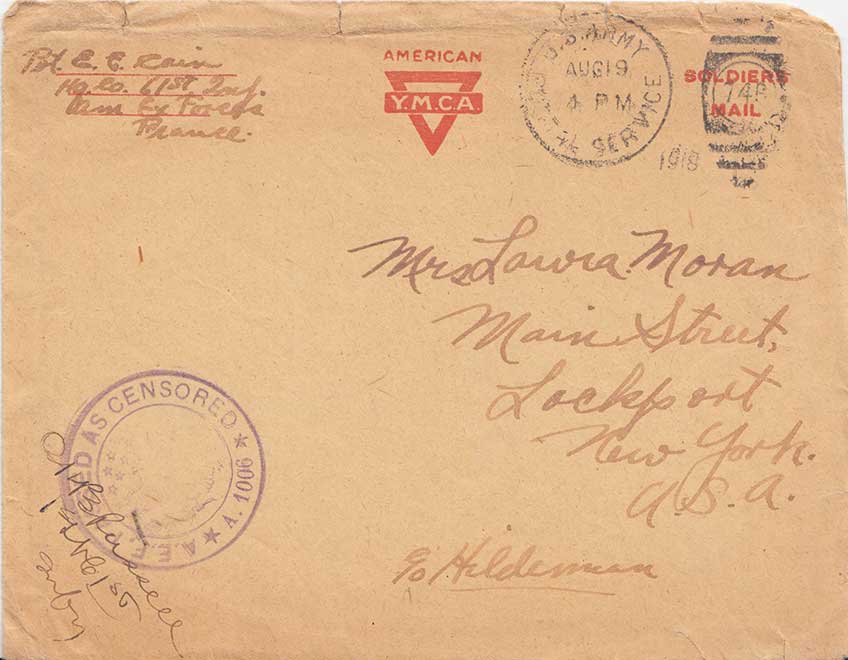 Pvt. E. E. Cain
Hq. Co. 61st Inf.
Am Ex Forces
France.
AMERICAN
Y.M.C.A
U.S. ARMY
AUG 19
4 PM
SERVICE
1918
SOLDIERS
MAIL
Mrs Lawra Moran
Main Street,
Lockport
New York.
U.S.A.
c/o Hildeman
AS CENSORED
A. 1006
A.E.F.
61st